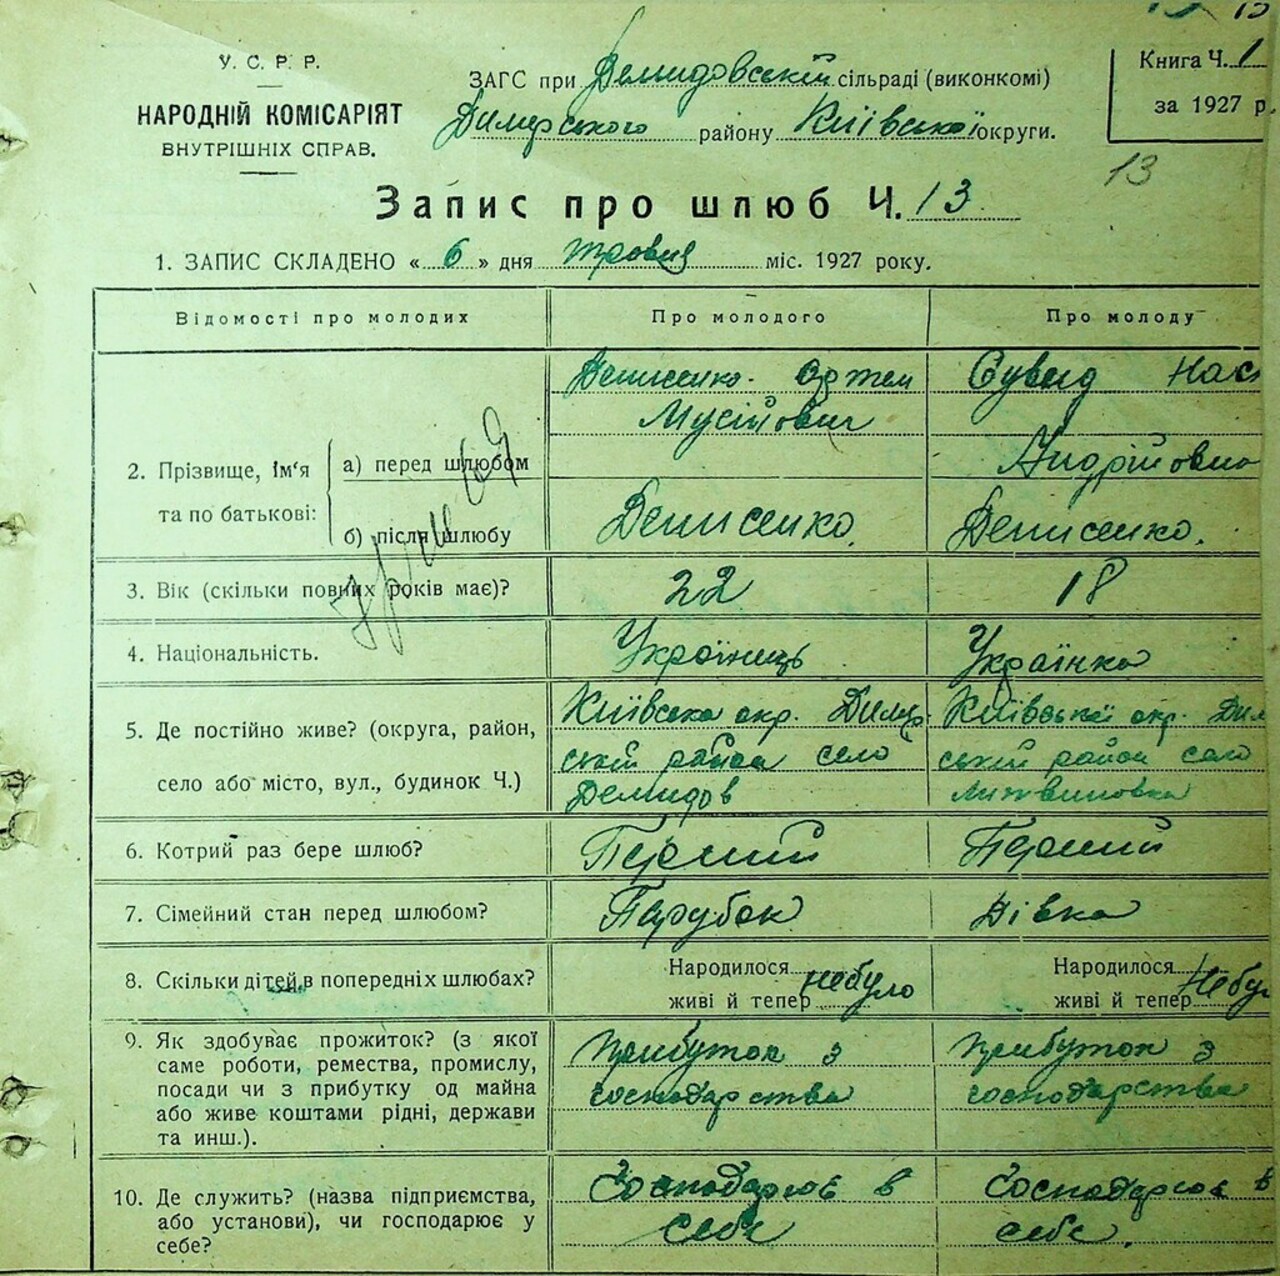 У. С. Р. Р.
НАРОДНІЙ КОМІСАРІЯТ
ВНУТРІШНІХ СПРАВ.
ЗАГС при Демидовській сільраді (виконкомі)
Димерського району Київської округи.
Книга Ч. 1
за 1927 р.
13
Запис про шлюб Ч. 13
1. ЗАПИС СКЛАДЕНО « 6 » дня травня міс. 1927 року.
Відомості про молодих Про молодого Про молоду
2. Прізвище, ім'я та по батькові:
а) перед шлюбом
Денисенко Артем
Мусійович
Сувид Нас
Андрійовна
б) після шлюбу
Денисенко. Денисенко.
3. Вік (скільки повних років має)? 22 18
4. Національність. Українець Українка
5. Де постійно живе? (округа, район,
село або місто, вул., будинок Ч.)
Київська окр. Димер-
ській района село
Демидов
Київської окр. Дим
ській район село
Литвиновка
6. Котрий раз бере шлюб? Перший Перший
7. Сімейний стан перед шлюбом? Парубок Дівка
8. Скільки дітей в попередніх шлюбах?
Народилося
живі й тепер небуло
Народилося
живі й тепер Небул
9. Як здобуває прожиток? (з якої
саме роботи, ремества, промислу,
посади чи з прибутку од майна
або живе коштами рідні, держави
та инш.).
Прибуток з
господарства
Прибуток з
господарства
10. Де служить? (назва підприємства,
або установи), чи господарює у
себе?
Господарює в
себе
Господарює в
себе.